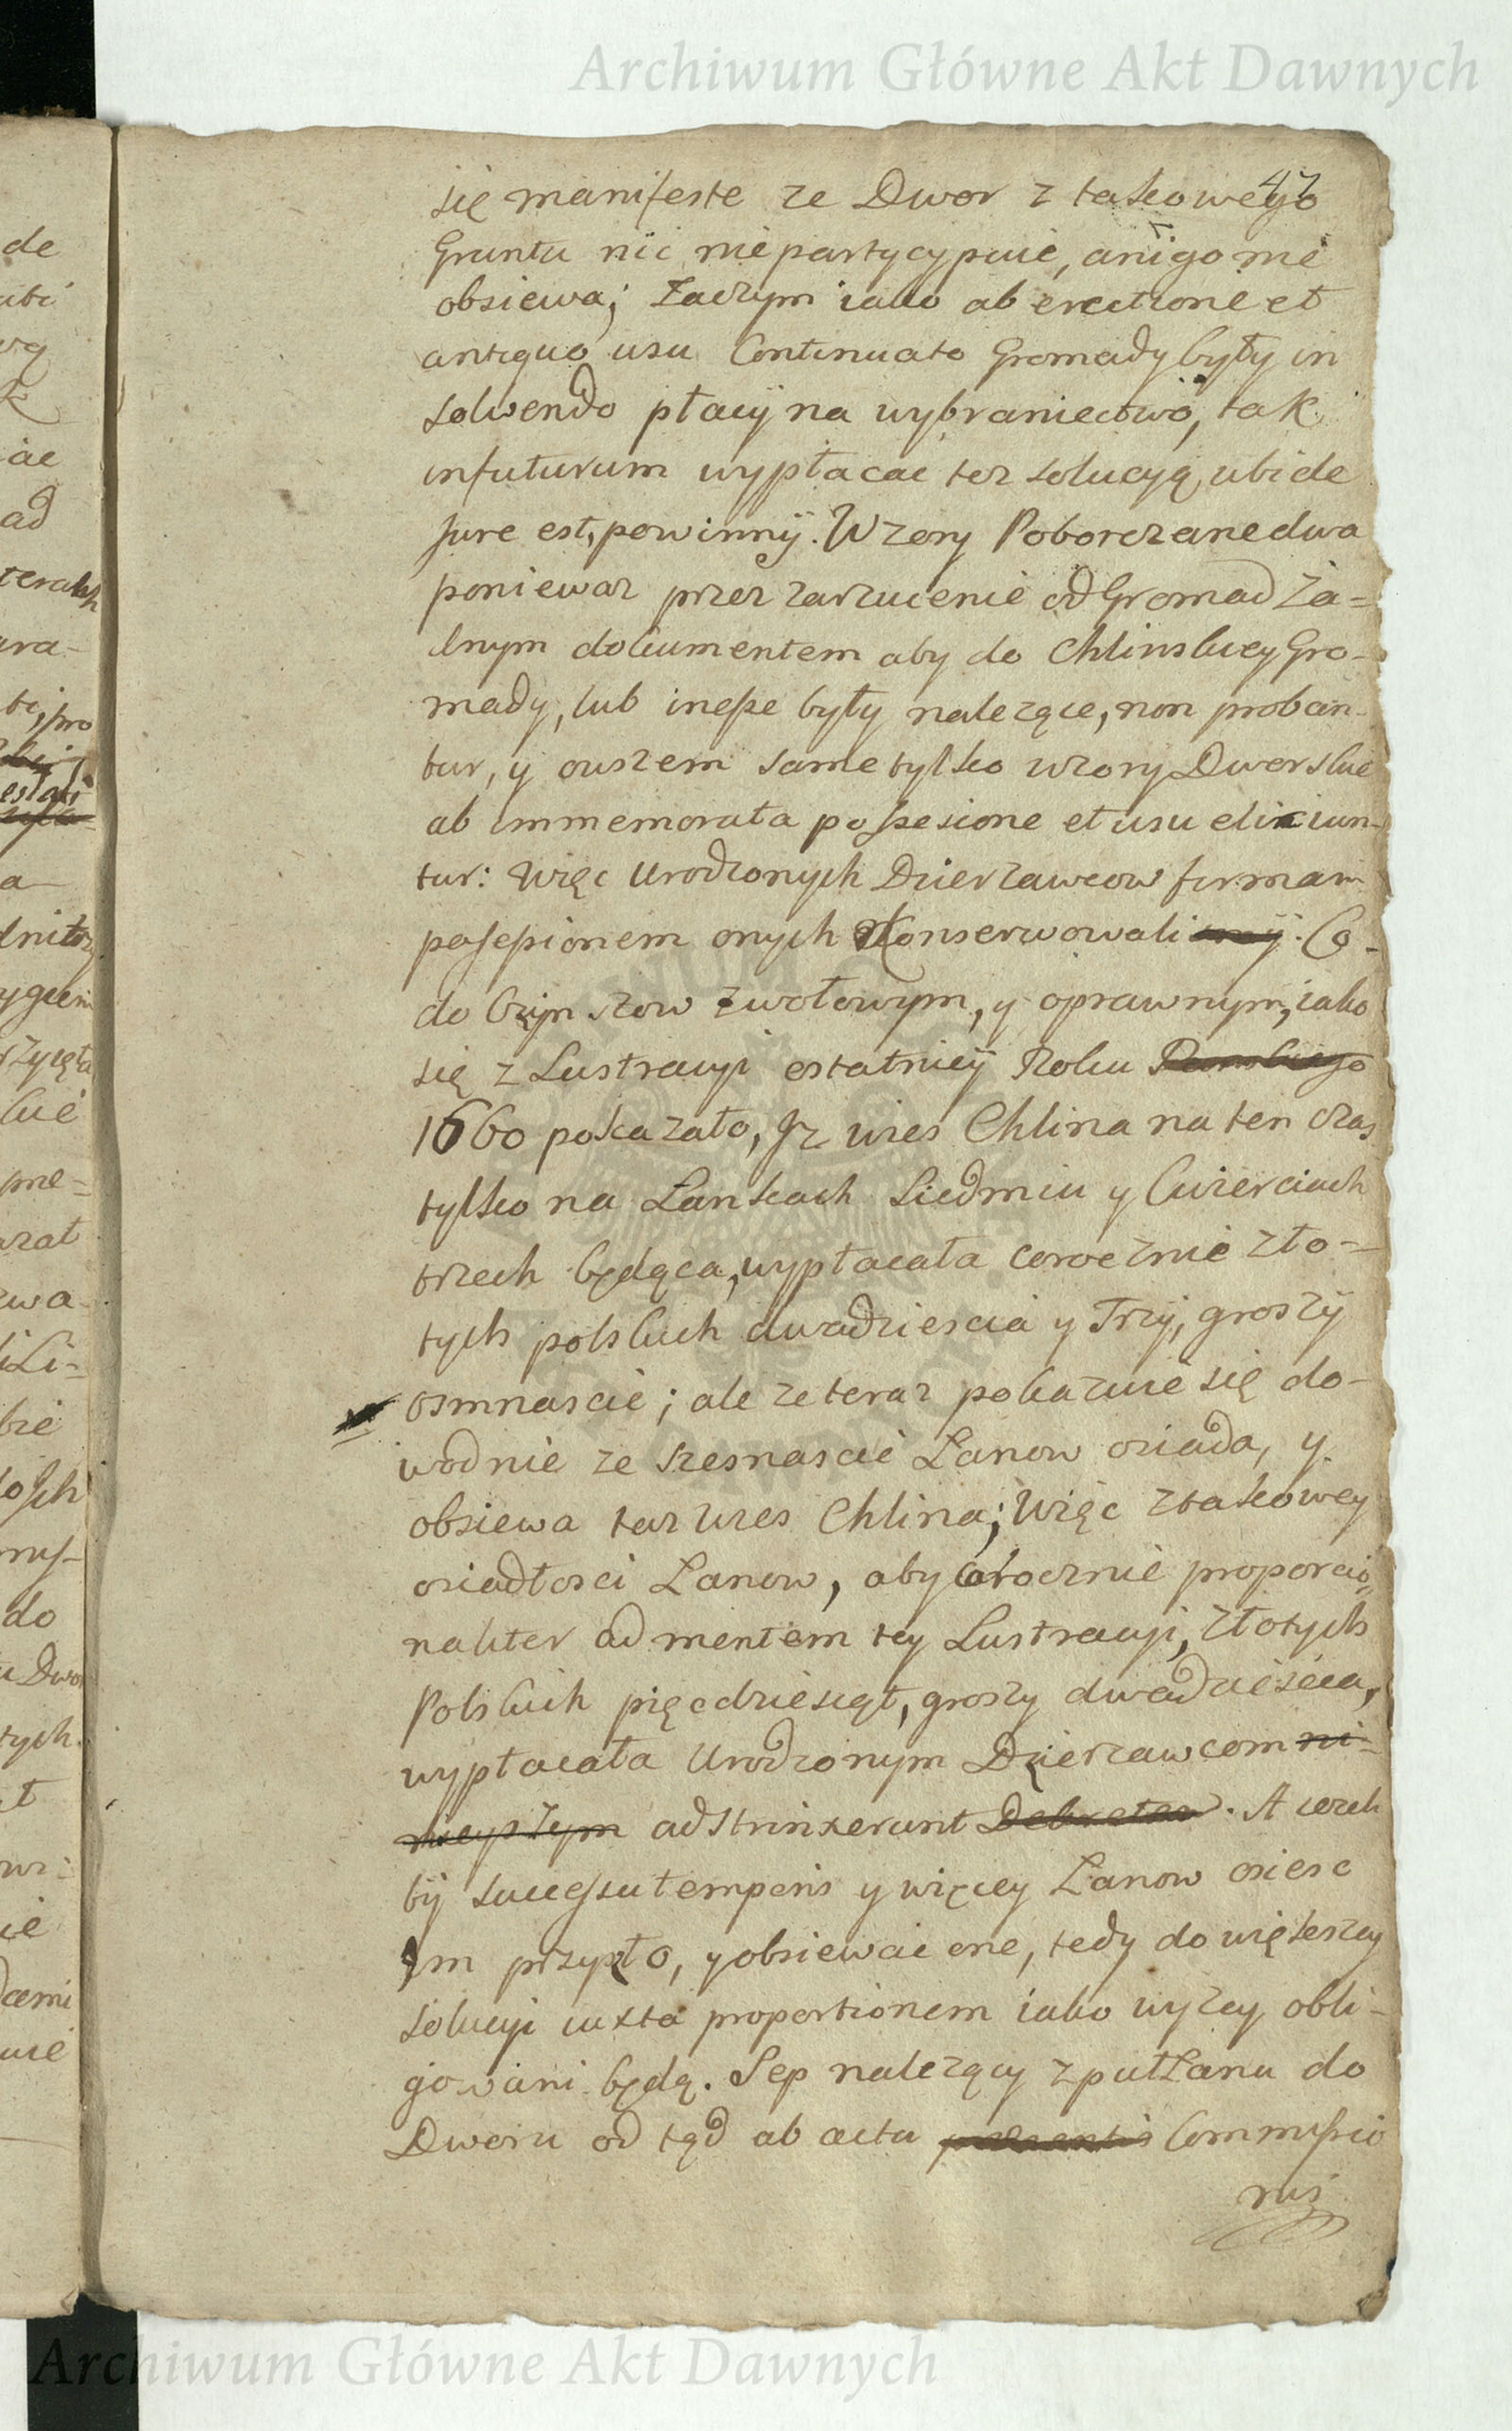 Archiwum Główne Akt Dawnych
47
się manifeste ze Dwor z takowego
Gruntu nic niepartycypuie, anigo nie
obsiewa; Zaczym iako ab erectione et
antiquo usu Continuato Gromady były in
solwendo płacy na wybraniecowo, tak
infuturum wypłacac tez solucyą, ubi de
Jure est, powinny. Wzory Poborczane dwa
poniewaz przez zarzucenie od Gromad ża=
dnym dokumentem aby do Chlinskiey Gro-
mady, lub insze były nalezące, non proban-
tur, y owszem same tylko wzory Dworskie
ab immemorata possesione et usu eliciun-
tur: Więc Urodzonych Dzierzawcow firmam
possessionem onych Konserwowali. Co-
do Czynszow zwołowym, y oprawnym, iako
się z Lustracyi ostatniey Roku
1660 pokazało, Jz wies Chlina na ten czas
tylko na Łankach Siedmiu y Cwierciach
trzech będąca, wypłacała corocznie zło=
tych polskich dwadziescia y Trzy, groszy
osmnascie; ale ze teraz pokazuie się do-
wodnie ze szesnascie Łanow osiada, y
obsiewa taz wies Chlina; Więc z takowey
osiadłosci Łanow, aby corocznie proporcio
naliter ad mentem tey Lustracyi, złotych
Polskich pięcdziesiąt, groszy dwadziescia,
wypłacała Urodzonym Dzierzawcom ni-
nieyszym adstrinxerunt Dekretem. A iezeli
by successu temporis y więcey Łanow osiesc
Jm przyszło, y obsiewac one, tedy do większey
solucyi iuxta proportionem iako wyzey obli-
gowani będą. Sep nalezący z puł Łanu do
Dworu od tąd ab actu praesentis Commissio
nis
Archiwum Główne Akt Dawnych